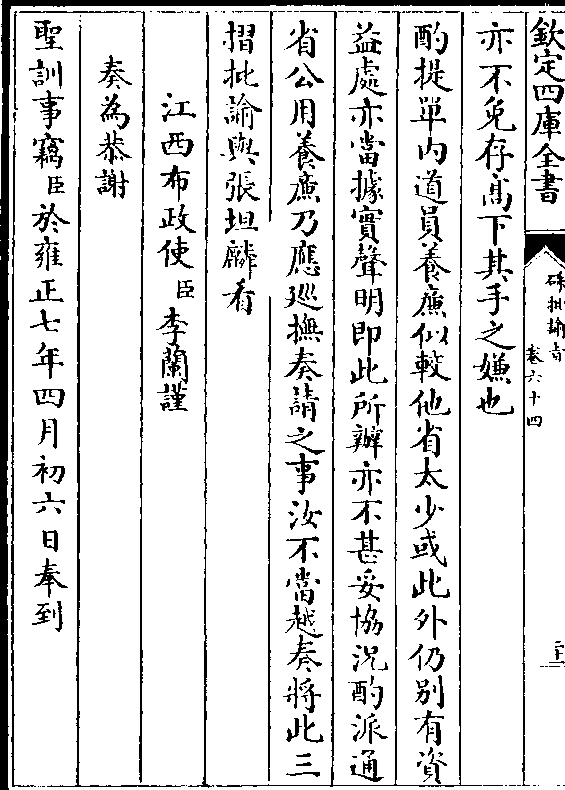 欽定四庫全書
硃批諭旨
卷六十四
亦不免存高下其手之嫌也
酌提單内道員養廉似較他省太少或此外仍别有資
益處亦當據實聲明即此所辦亦不甚妥協况酌派通
省公用養廉乃應廵撫奏請之事汝不當越奏將此三
摺批諭與張坦麟看
江西布政使臣李蘭謹
奏為恭謝
聖訓事竊臣於雍正七年四月初六日奉到